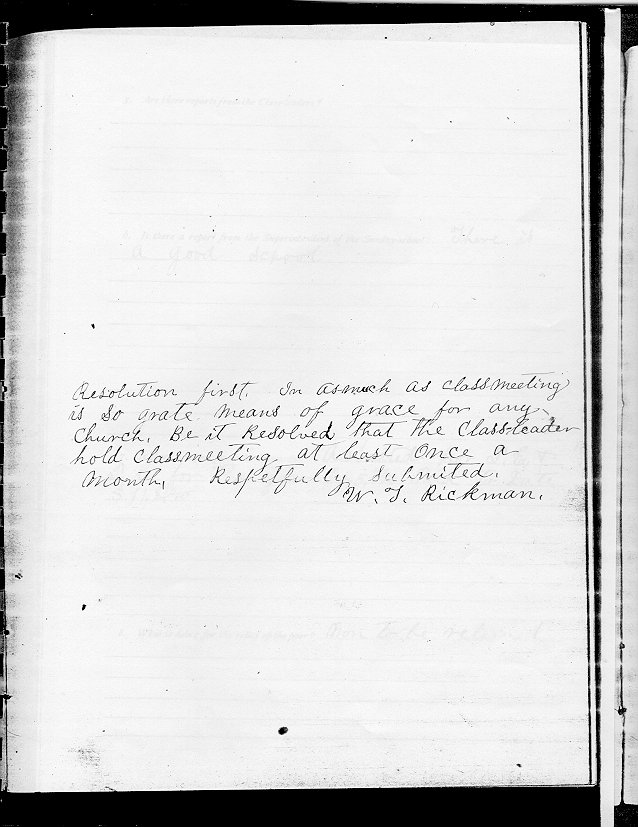 5. Are there reports from the Classleaders?
6. Is there a report from the Superintendent of the Sunday-school? There is
a good School
Resolution first. In asmuch as classmeeting
is so grate means of grace for any
Church. Be it Resolved that the Class-leader
hold Classmeeting at least once a
Month. Respetfully Submited.
W. T. Rickman.